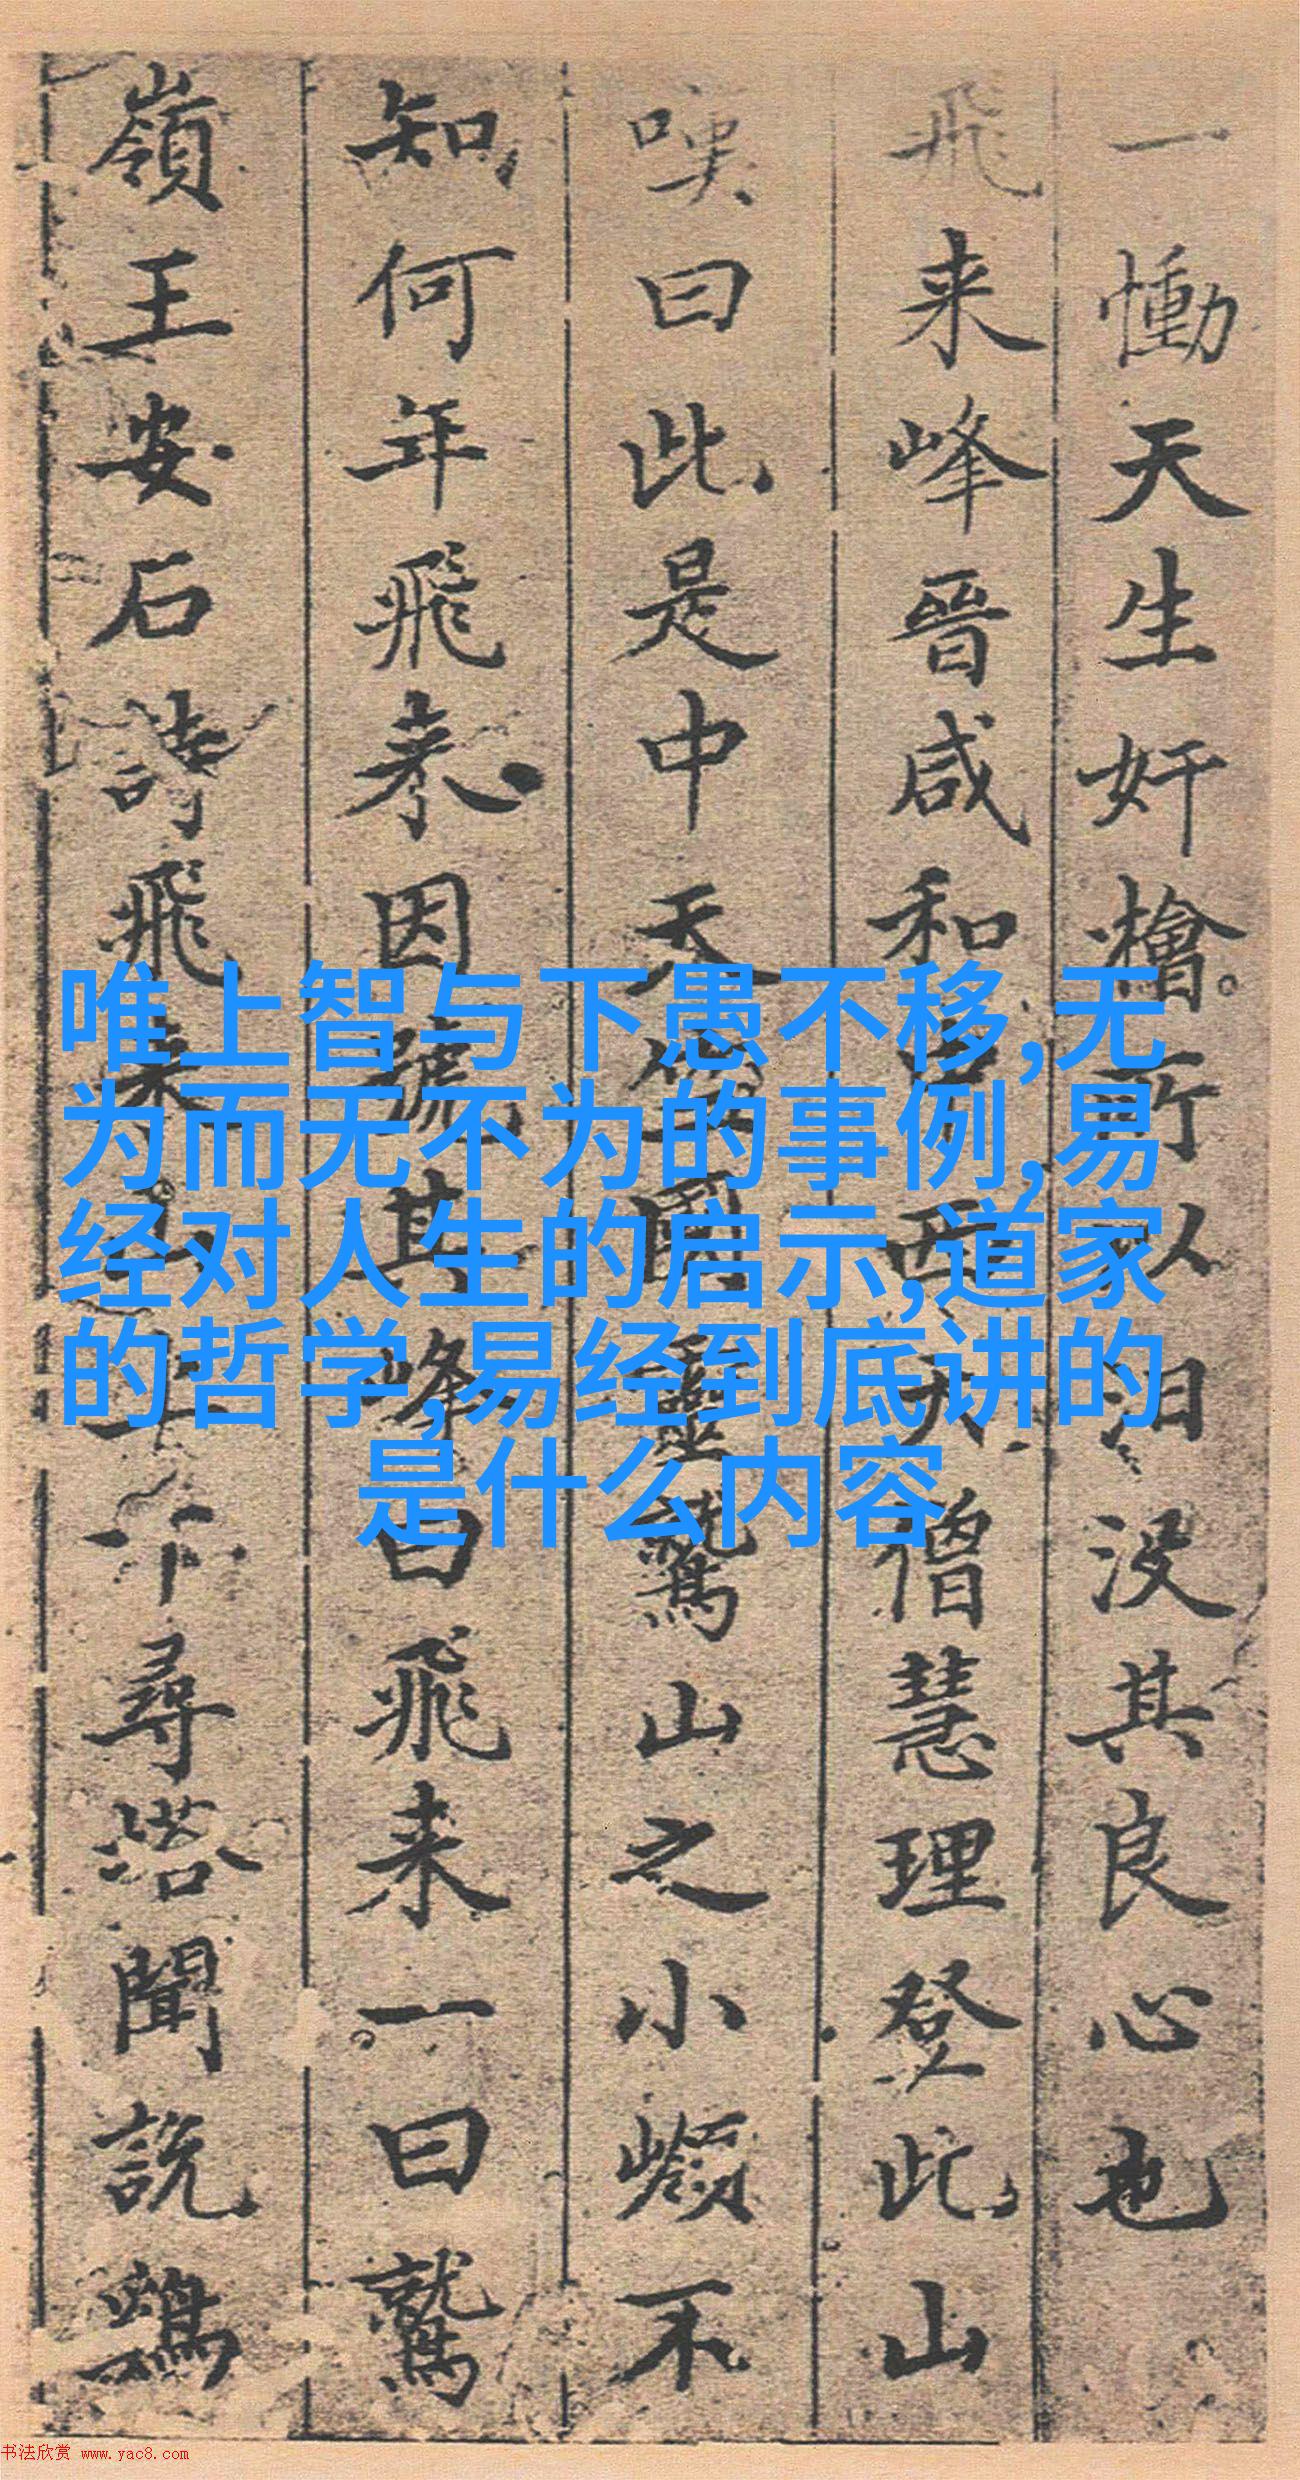 一慟天生奸檜所以汩没其良心也
飛来峰晉咸和西天僧慧理登此山
嘆曰此是中天國靈鷲山之小嶺不
知何年飛来因號其峰曰飛来一曰鷲
嶺王安石詩飛来山上千尋塔聞說鷄
唯上智与下愚不移,无
为而无不为的事例,易
经对人生的启示,道家
的哲学,易经到底讲的
是什么内容
书法欣赏 www.yac8.com